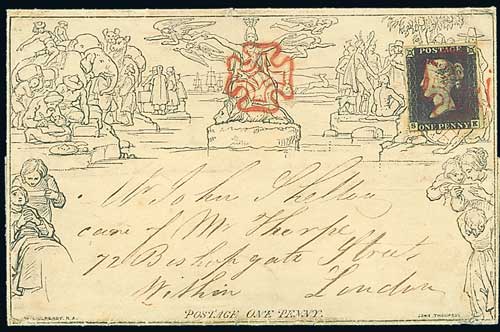 POSTAGE
ONE PENNY
S K
Mr John Shelton
care of Mr Thorpe
72 Bishopgate Street
Within London
POSTAGE ONE PENNY.
W. MULREADY. R.A.
JOHN THOMPSON